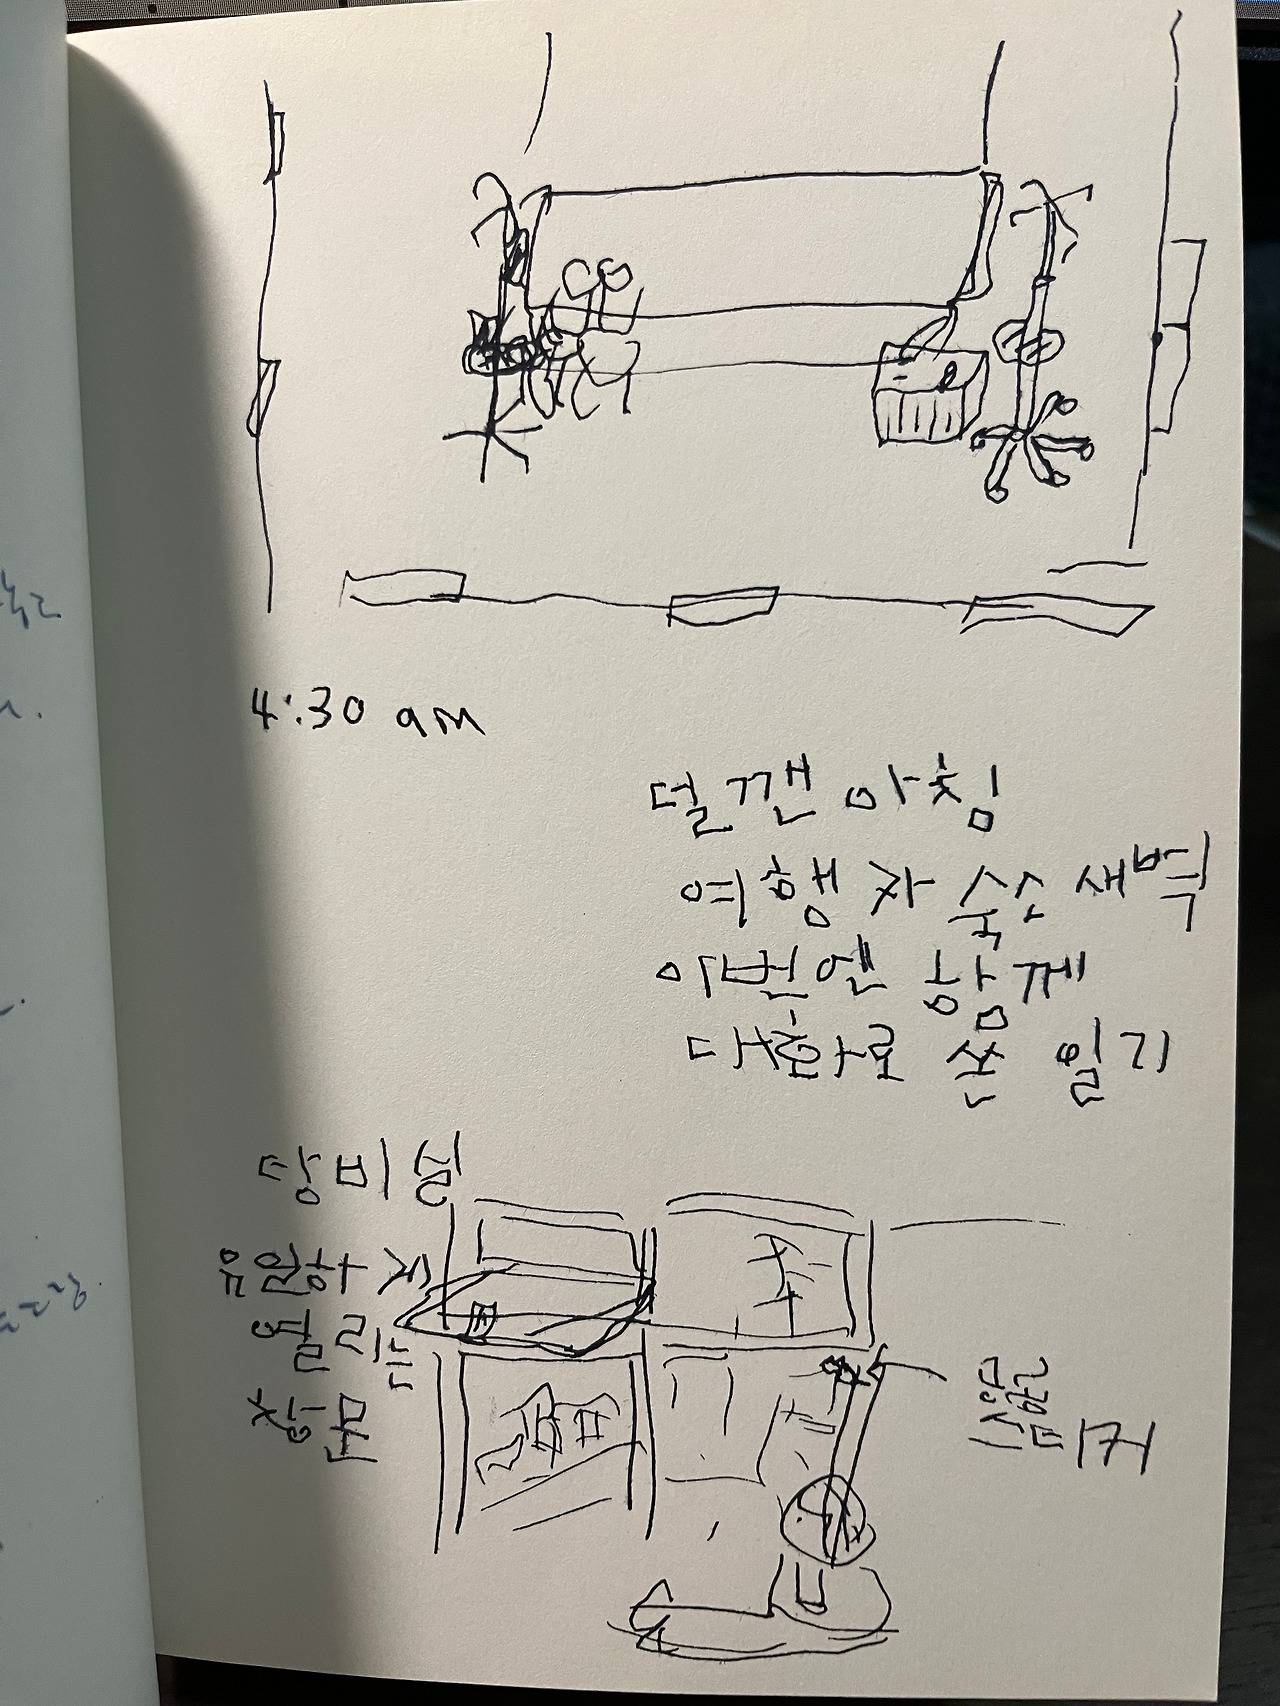 4:30 am
덜 깬 아침
여행자 숙소 새벽
이번엔 함께
대화로 쓴 일기
당비실
유일하게
열리는
창문